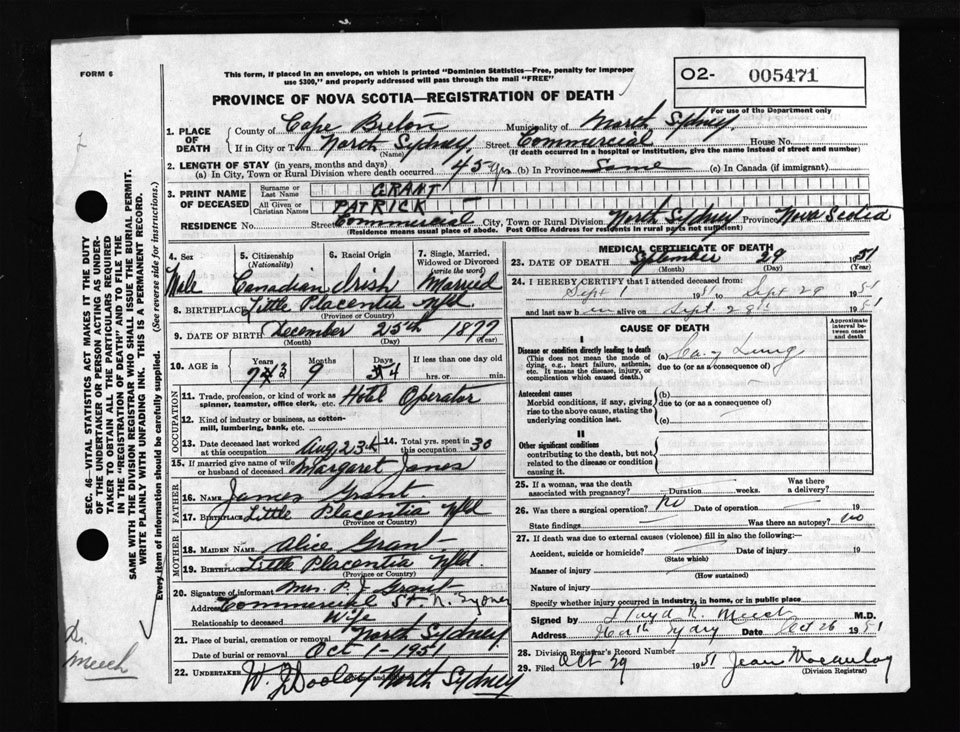 FORM 6
This form, if placed in an envelope, on which is printed "Dominion Statistics—Free, penalty for improper
use $300," and properly addressed will pass through the mail "FREE"
O2- 005471
For use of the Department only
PROVINCE OF NOVA SCOTIA—REGISTRATION OF DEATH
1. PLACE OF DEATH
County of Cape Breton Municipality of North Sydney
If in City or Town North Sydney, Street Commercial House No.
(Name) (If death occurred in a hospital or institution, give the name instead of street and number)
2. LENGTH OF STAY (in years, months and days)
(a) In City, Town or Rural Division where death occurred 45 yrs (b) In Province Same (c) In Canada (if immigrant)
3. PRINT NAME OF DECEASED
Surname or Last Name GRANT
All Given or Christian Names PATRICK J
RESIDENCE No. Street Commercial City, Town or Rural Division North Sydney Province Nova Scotia
(Residence means usual place of abode. Post Office Address for residents in rural parts not sufficient)
4. Sex 5. Citizenship (Nationality) 6. Racial Origin 7. Single, Married, Widowed or Divorced (write the word)
Male Canadian Irish Married
8. BIRTHPLACE Little Placentia Nfld
(Province or Country)
9. DATE OF BIRTH December 25th 1877
(Month) (Day)
10. AGE in Years Months Days If less than one day old
73 9 4 hrs. or min.
OCCUPATION
11. Trade, profession, or kind of work as spinner, teamster, office clerk, etc. Hotel Operator
12. Kind of industry or business, as cotton-mill, lumbering, bank, etc.
13. Date deceased last worked at this occupation Aug 23rd 14. Total yrs. spent in this occupation 30
15. If married give name of wife or husband of deceased Margaret Janes
FATHER
16. NAME James Grant
17. BIRTHPLACE Little Placentia Nfld
(Province or Country)
MOTHER
18. MAIDEN NAME Alice Grant
19. BIRTHPLACE Little Placentia Nfld
(Province or Country)
20. Signature of informant Mrs. P. J. Grant
Address Commercial St. N. Sydney
Relationship to deceased Wife
21. Place of burial, cremation or removal North Sydney
Date of burial or removal Oct 1-1951
22. UNDERTAKER W. J. Dooley North Sydney
MEDICAL CERTIFICATE OF DEATH
23. DATE OF DEATH September 29 1951
(Month) (Day) (Year)
24. I HEREBY CERTIFY that I attended deceased from:
Sept 1 1951 to Sept 29 1951
and last saw him alive on Sept. 28 1951
CAUSE OF DEATH
Approximate interval between onset and death
I
Disease or condition directly leading to death (a) Ca. of Lung
(This does not mean the mode of dying, e.g., heart failure, asthenia, etc. It means the disease, injury, or complication which caused death.)
due to (or as a consequence of)
Antecedent causes (b)
Morbid conditions, if any, giving rise to the above cause, stating the underlying condition last.
due to (or as a consequence of)
(c)
II
Other significant conditions
contributing to the death, but not related to the disease or condition causing it
25. If a woman, was the death associated with pregnancy? Duration weeks. Was there a delivery?
26. Was there a surgical operation? No Date of operation 19
State findings Was there an autopsy? No
27. If death was due to external causes (violence) fill in also the following:—
Accident, suicide or homicide? Date of injury 19
(State which)
Manner of injury
(How sustained)
Nature of injury
Specify whether injury occurred in industry, in home, or in public place
Signed by Lloyd R. Meech M.D.
Address North Sydney Date Oct 26 1951
28. Division Registrar's Record Number
29. Filed Oct 29 1951 Jean Macaulay
(Division Registrar)
SEC. 46—VITAL STATISTICS ACT MAKES IT THE DUTY
OF THE UNDERTAKER OR PERSON ACTING AS UNDER-
TAKER TO OBTAIN ALL THE PARTICULARS REQUIRED
IN THE "REGISTRATION OF DEATH" AND TO FILE THE
SAME WITH THE DIVISION REGISTRAR WHO SHALL ISSUE THE BURIAL PERMIT.
WRITE PLAINLY WITH UNFADING INK. THIS IS A PERMANENT RECORD.
Every item of information should be carefully supplied. (See reverse side for instructions.)
Dr.
Meech